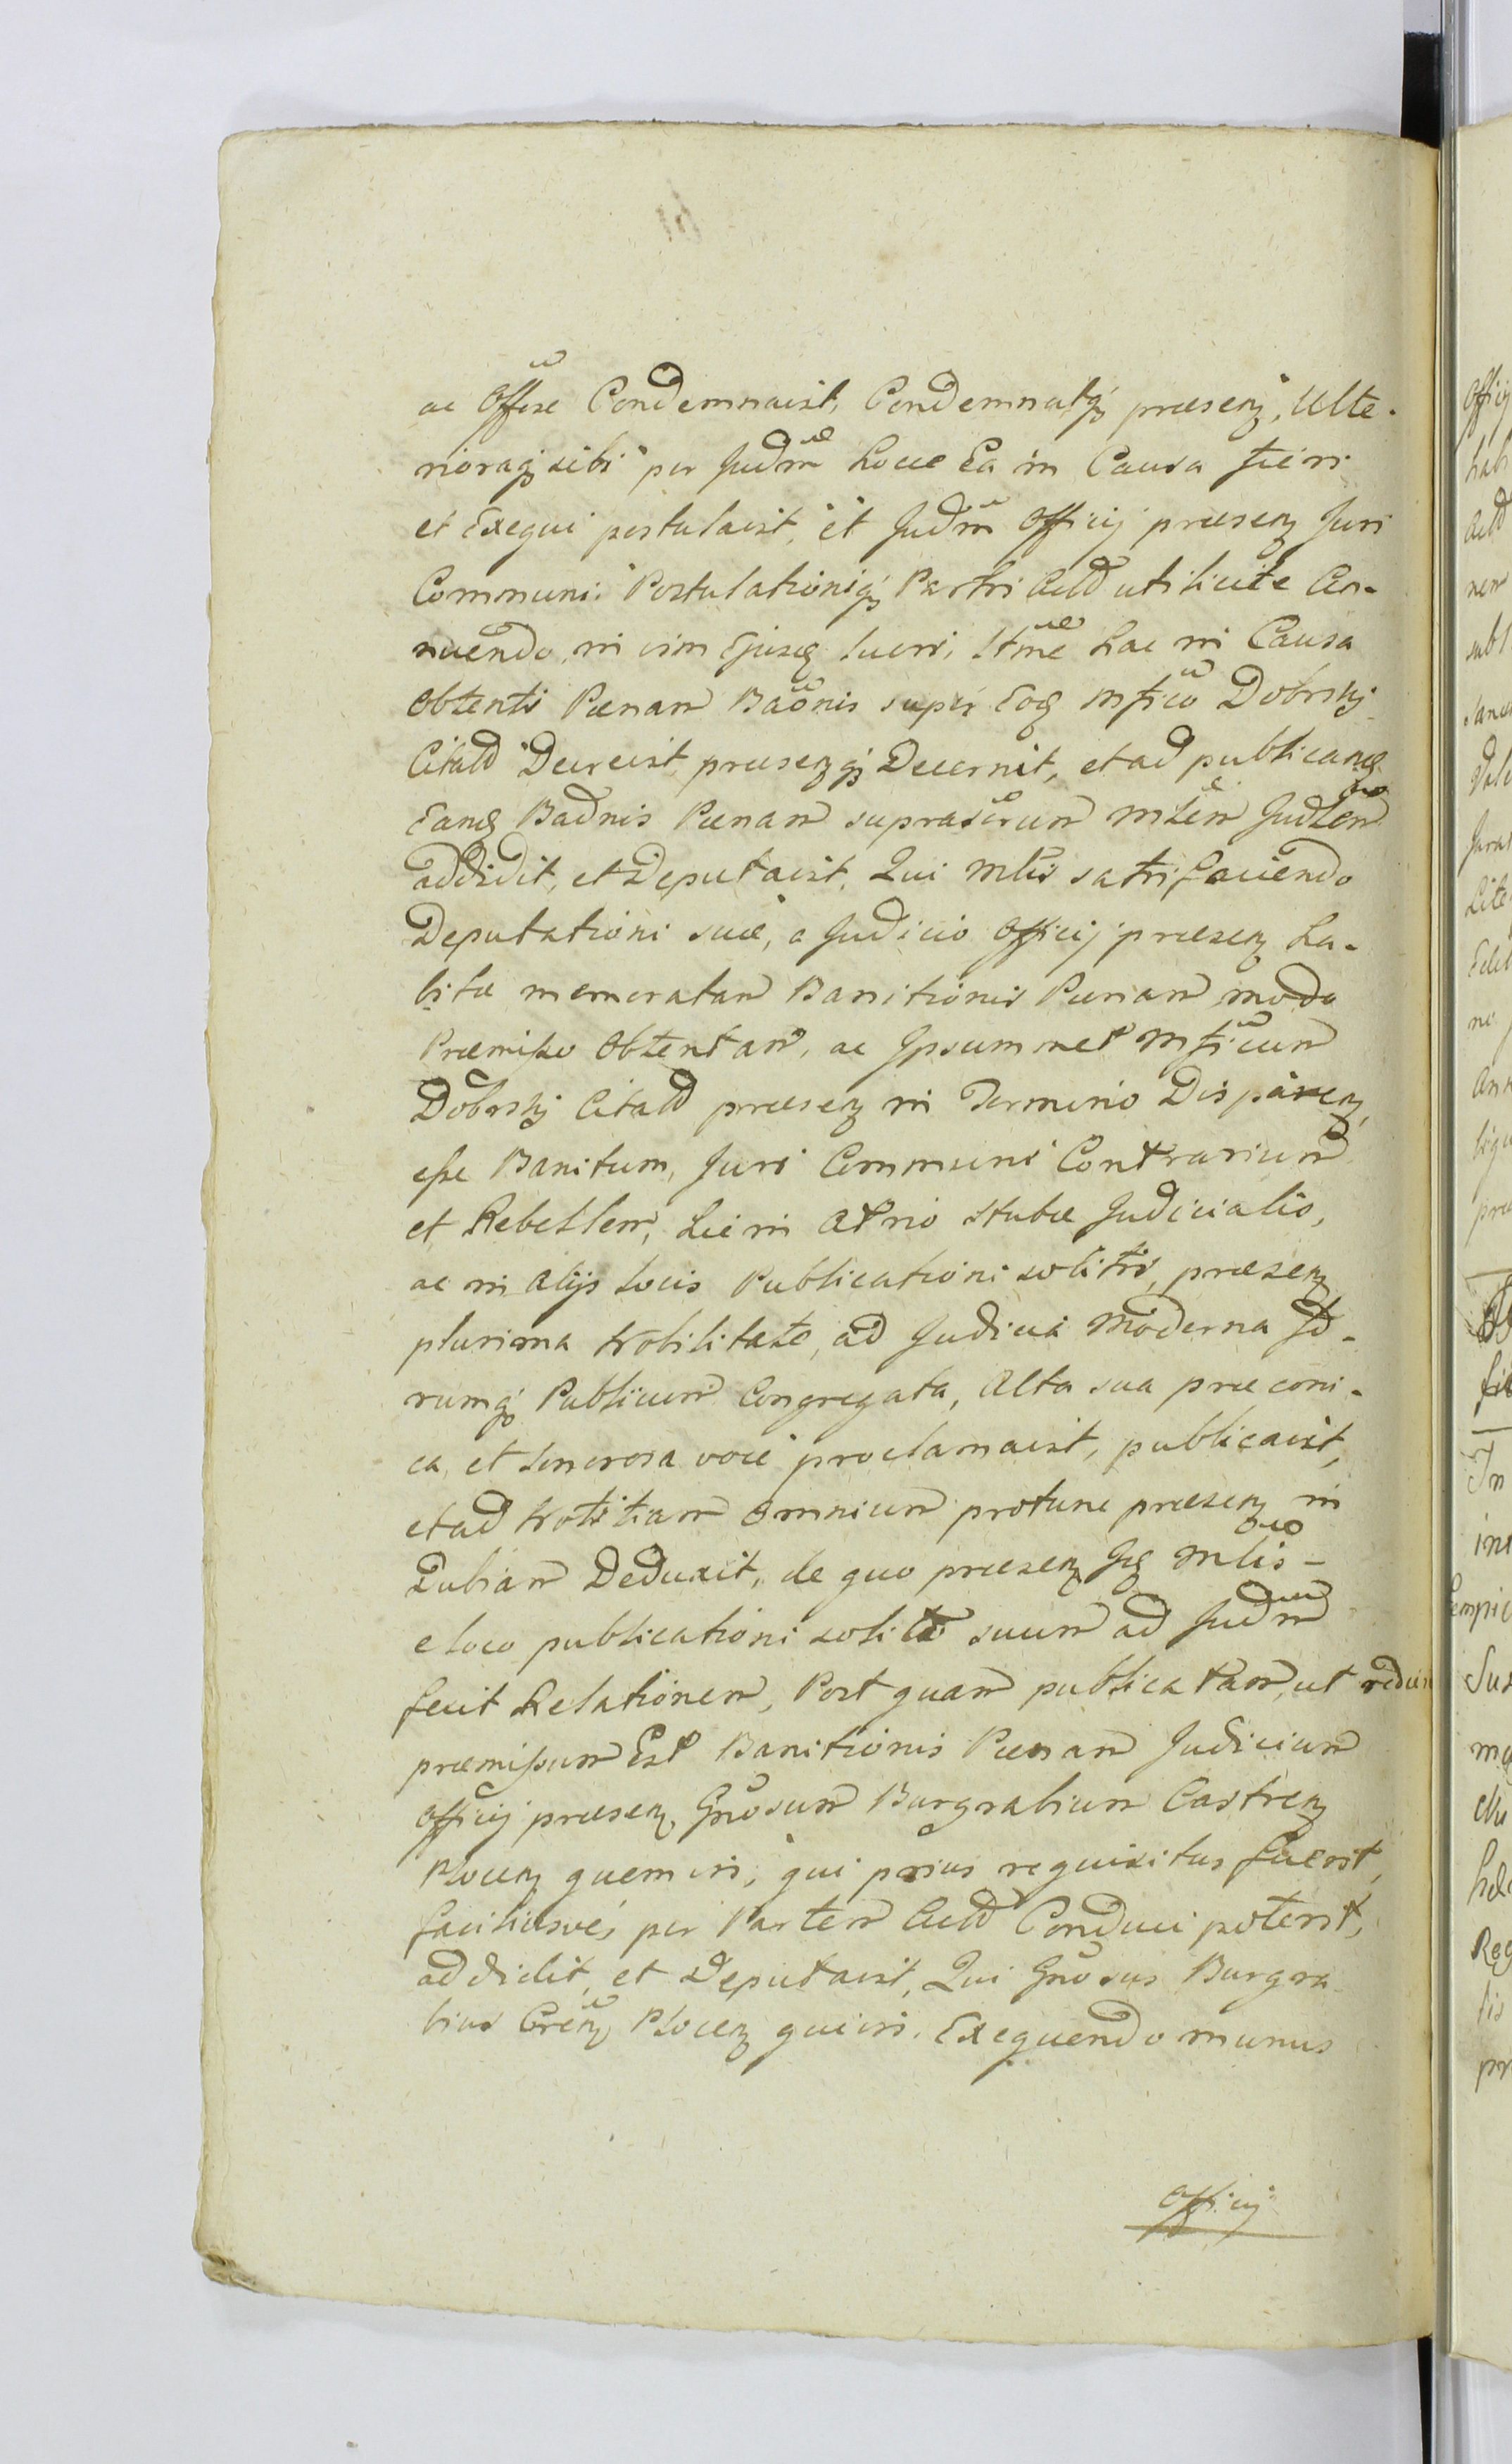 ac Offīse Condemnavit, Condemnatq; præsenz, Ulte-
rioraq; sibi per Judm̄ hocce Ea in Causa fieri
et Exequi postulavit, et Judm̄ Officij præsenz Juri
Communi Postulationiq; Partis Actt̄ utilicite An-
nuendo, in vim Ejusq lucri, hac in Causa
obtenti Pœnam Bāonis super Eoq Mfico Dobrskj
Citatt̄ Decrevit præsenzq; Decernit, et ad publicanq
Eanq Baōnis Pœnam supraserum Mlēm Judlem
addidit, et Deputavit, Qui Mtis satisfaciendo
Deputationi suæ, a Judicio Officij præsenz ha-
bitæ memoratam Banitionis Pœnam modo
Præmisso Obtentam, ac Ipsummet Mficum
Dobrskj Citatt̄ præsenz in Termino Disparenz,
esse Banitum, Juri Communi Contrarium
et Rebellem, hic in Atrio Stubæ Judicialis,
ac in alijs locis Publicationi solitis, præsenz
plurima Nobilitate, ad Judicia Moderna
rumq; Publicum Congregata, Alta sua præconi-
ca, et Sonorosa voce proclamavit, publicavit,
et ad Notitiam omnium protunc præsenz in
Publam Deduxit, de quo præsenz Mtis
e loco publicationi solito suum ad Judm̄
fecit Relationem, Post quam publicatam, ut
præmissum Est Banitionis Pœnam Judicium
Officij præsenz Gnōsum Burgrabium Castrenz
Plocenz quemvis, qui prius requisitus fuerit,
faciliusve, per Partem Actt̄ Conduci poterit,
addidit, et Deputavit, Qui Gnōsus Burgra
bius Crēnz Plocenz quivis. Exequendo munus
Officij